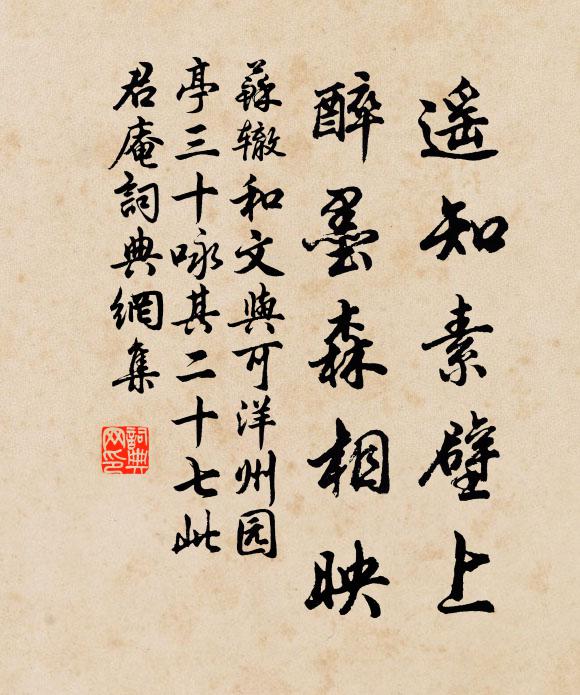 遥知素壁上
醉墨森相映
蘇辙和文與可洋州园
亭三十咏其二十七此
君庵詞典網集
詞典
网印